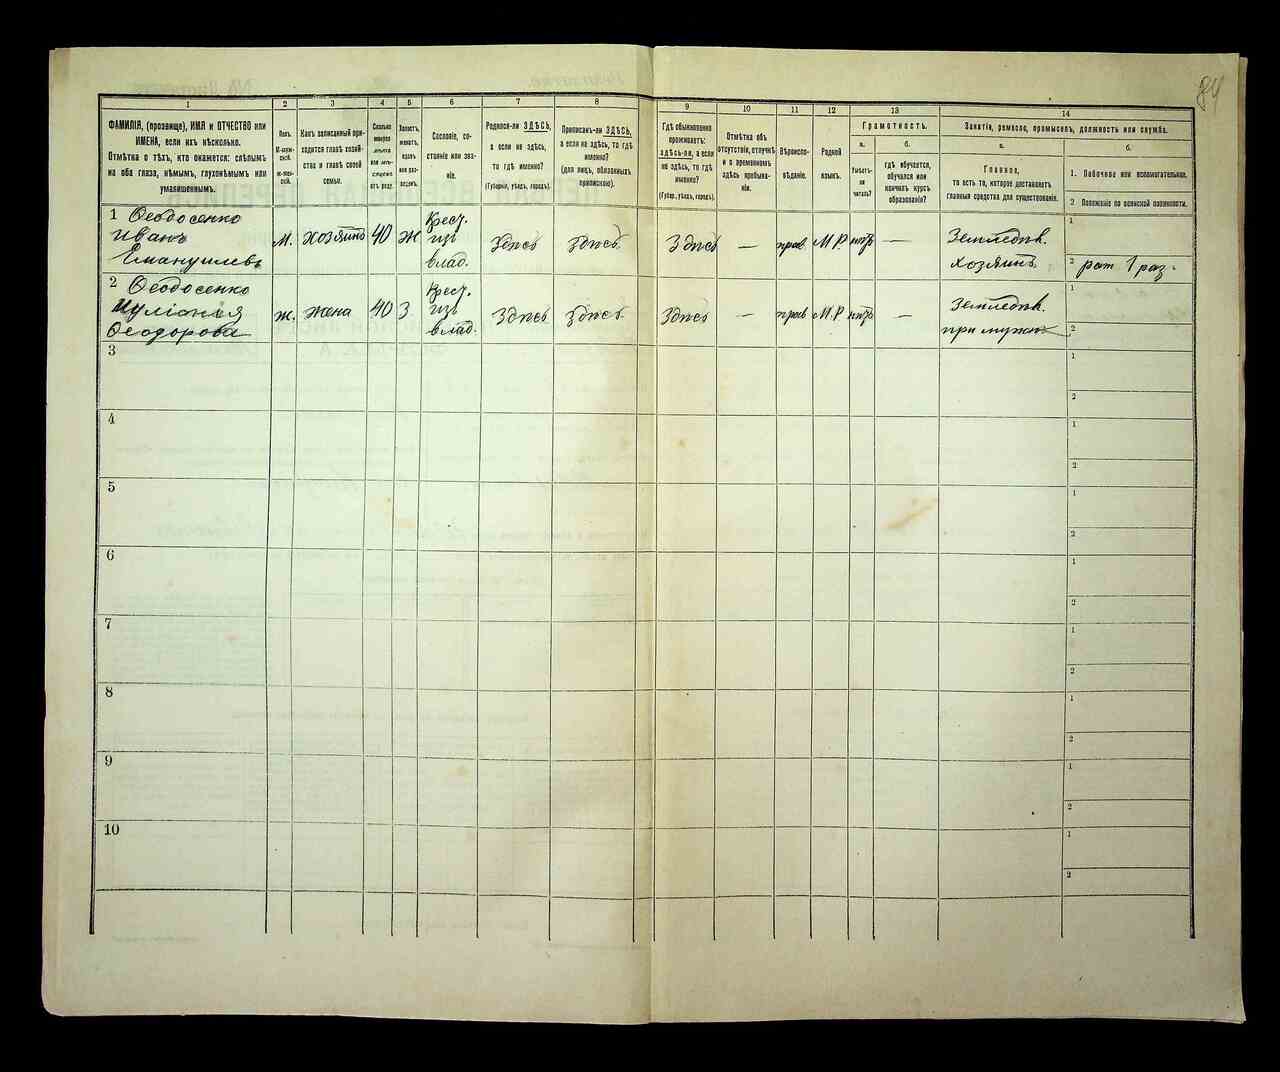 84
1 2 3 4 5 6 7 8 9 10 11 12 13 14
ФАМИЛІЯ, (прозвище), ИМЯ и ОТЧЕСТВО или
ИМЕНА, если ихъ нѣсколько.
Отмѣтка о тѣхъ, кто окажется: слѣпымъ
на оба глаза, нѣмымъ, глухонѣмымъ или
умалишеннымъ.
Полъ.
М-мужской.
Ж-женской.
Какъ записанный приходится главѣ хозяйства и главѣ своей семьи.
Сколько минуло лѣтъ или мѣсяцевъ отъ роду.
Холостъ, женатъ, вдовъ или разведенъ.
Сословіе, состояніе или званіе.
Родился-ли ЗДѢСЬ,
а если не здѣсь,
то гдѣ именно?
(Губернія, уѣздъ, городъ).
Приписанъ-ли ЗДѢСЬ,
а если не здѣсь, то гдѣ
именно?
(для лицъ, обязанныхъ
припискою).
Гдѣ обыкновенно
проживаетъ:
здѣсь-ли, а если
не здѣсь, то гдѣ
именно?
(Губер., уѣздъ, городъ).
Отмѣтка объ
отсутствіи, отлучкѣ
и о временномъ
здѣсь пребываніи.
Вѣроисповѣданіе.
Родной
языкъ.
Грамотность.
а.
Умѣетъ-ли
читать?
б.
гдѣ обучается,
обучался или
кончилъ курсъ
образованія?
Занятіе, ремесло, промыселъ, должность или служба.
а.
Главное,
то есть то, которое доставляетъ
главныя средства для существованія.
б.
1. Побочное или вспомогательное.
2 Положеніе по воинской повинности.
1 Ѳеодосенко
Иванъ
Емануиловъ
м. хозяинъ 40 ж
Крест.
изъ
влад.
Здѣсь Здѣсь Здѣсь — прав. М.Р. нѣтъ —
Земледѣл.
хозяинъ
1
2 рат 1 раз.
2 Ѳеодосенко
Ѳеодорова
ж. жена 40 З
Крест.
изъ
влад.
Здѣсь Здѣсь Здѣсь — прав М.Р нѣтъ —
Земледѣл.
при мужѣ
1
2
3
1
2
4
1
2
5
1
2
6
1
2
7
1
2
8
1
2
9
1
2
10
1
2